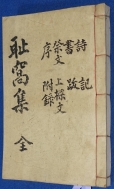 耻窩集 全
詩
書
祭文
序
記
跋
上樑文
附錄